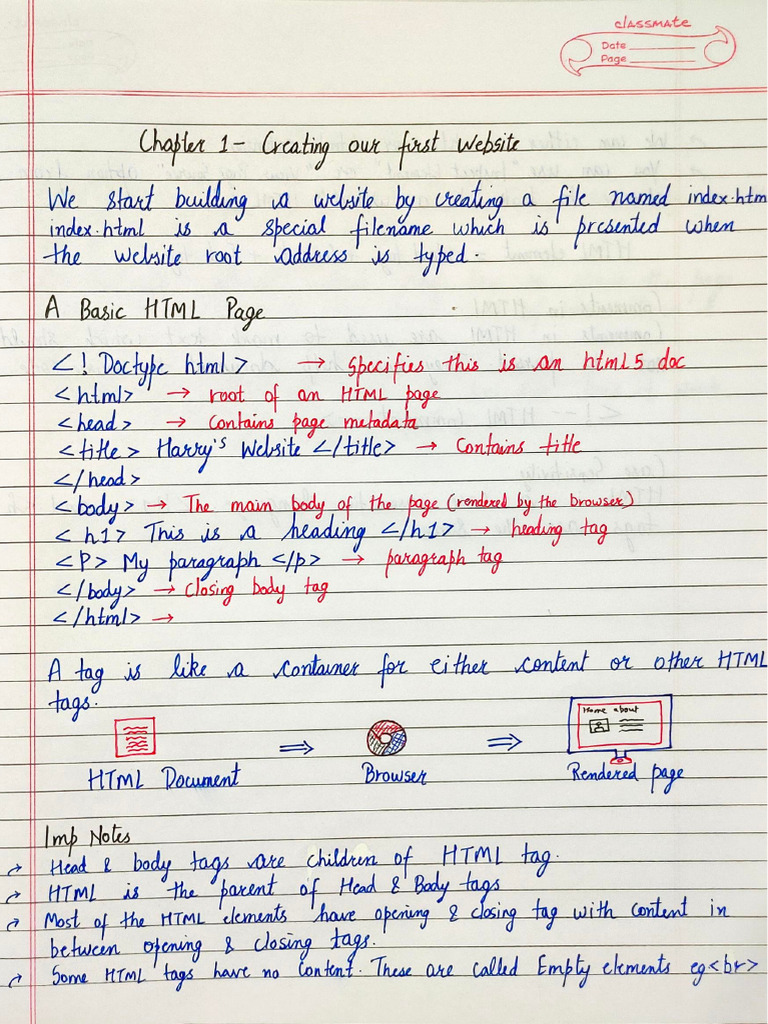 classmate
Date
Page
Chapter 1 - Creating our first website
We start building a website by creating a file named index.htm
index.html is a special filename which is presented when
the website root address is typed.
A Basic HTML Page
<! Doctype html> → specifies this is an html 5 doc
<html> → root of an HTML page
<head> → contains page metadata
<title> Harry's Website </title> → Contains title
</head>
<body> → The main body of the page (rendered by the browser)
<h1> This is a heading </h1> → heading tag
<P> My paragraph </p> → paragraph tag
</body> → closing body tag
</html> →
A tag is like a container for either content or other HTML
tags.
Home about
HTML Document ⇒ Browser ⇒ Rendered page
Imp Notes
→ Head & body tags are children of HTML tag.
→ HTML is the parent of Head & Body tags
→ Most of the HTML elements have opening & closing tag with content in
between opening & closing tags.
→ Some HTML tags have no content. These are called Empty elements eg <br>